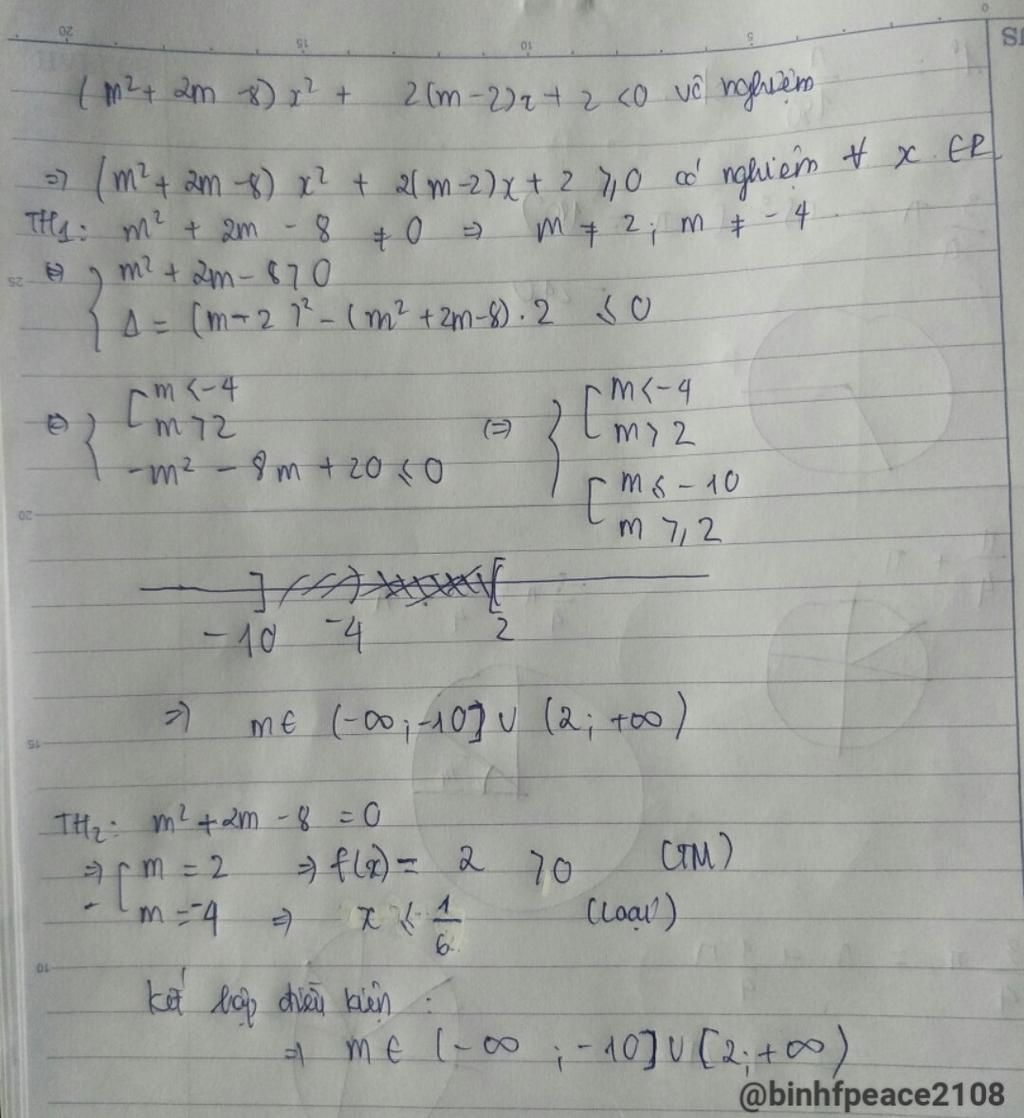 (m² + 2m - 8) x² + 2(m-2)x + 2 < 0 vô nghiệm
=> (m² + 2m - 8) x² + 2(m-2)x + 2 ≥ 0 có nghiệm ∀ x ∈ R
TH1: m² + 2m - 8 ≠ 0 => m ≠ 2; m ≠ -4
<=> { m² + 2m - 8 > 0
Δ = (m-2)² - (m² + 2m-8) . 2 ≤ 0
<=> { [ m < -4 <=> { [ m < -4
m > 2 m > 2
-m² - 8m + 20 ≤ 0 [ m ≤ -10
m ≥ 2
-10 -4 2
=> m ∈ (-∞; -10] ∪ (2; +∞)
TH2: m² + 2m - 8 = 0
=> [ m = 2 => f(x) = 2 > 0 (TM)
m = -4 => x ≤ 1/6 (Loại)
Kết hợp điều kiện :
=> m ∈ (-∞ ; -10] ∪ [2; +∞)
@binhfpeace2108
20 15 10 5 0
25
20
15
10